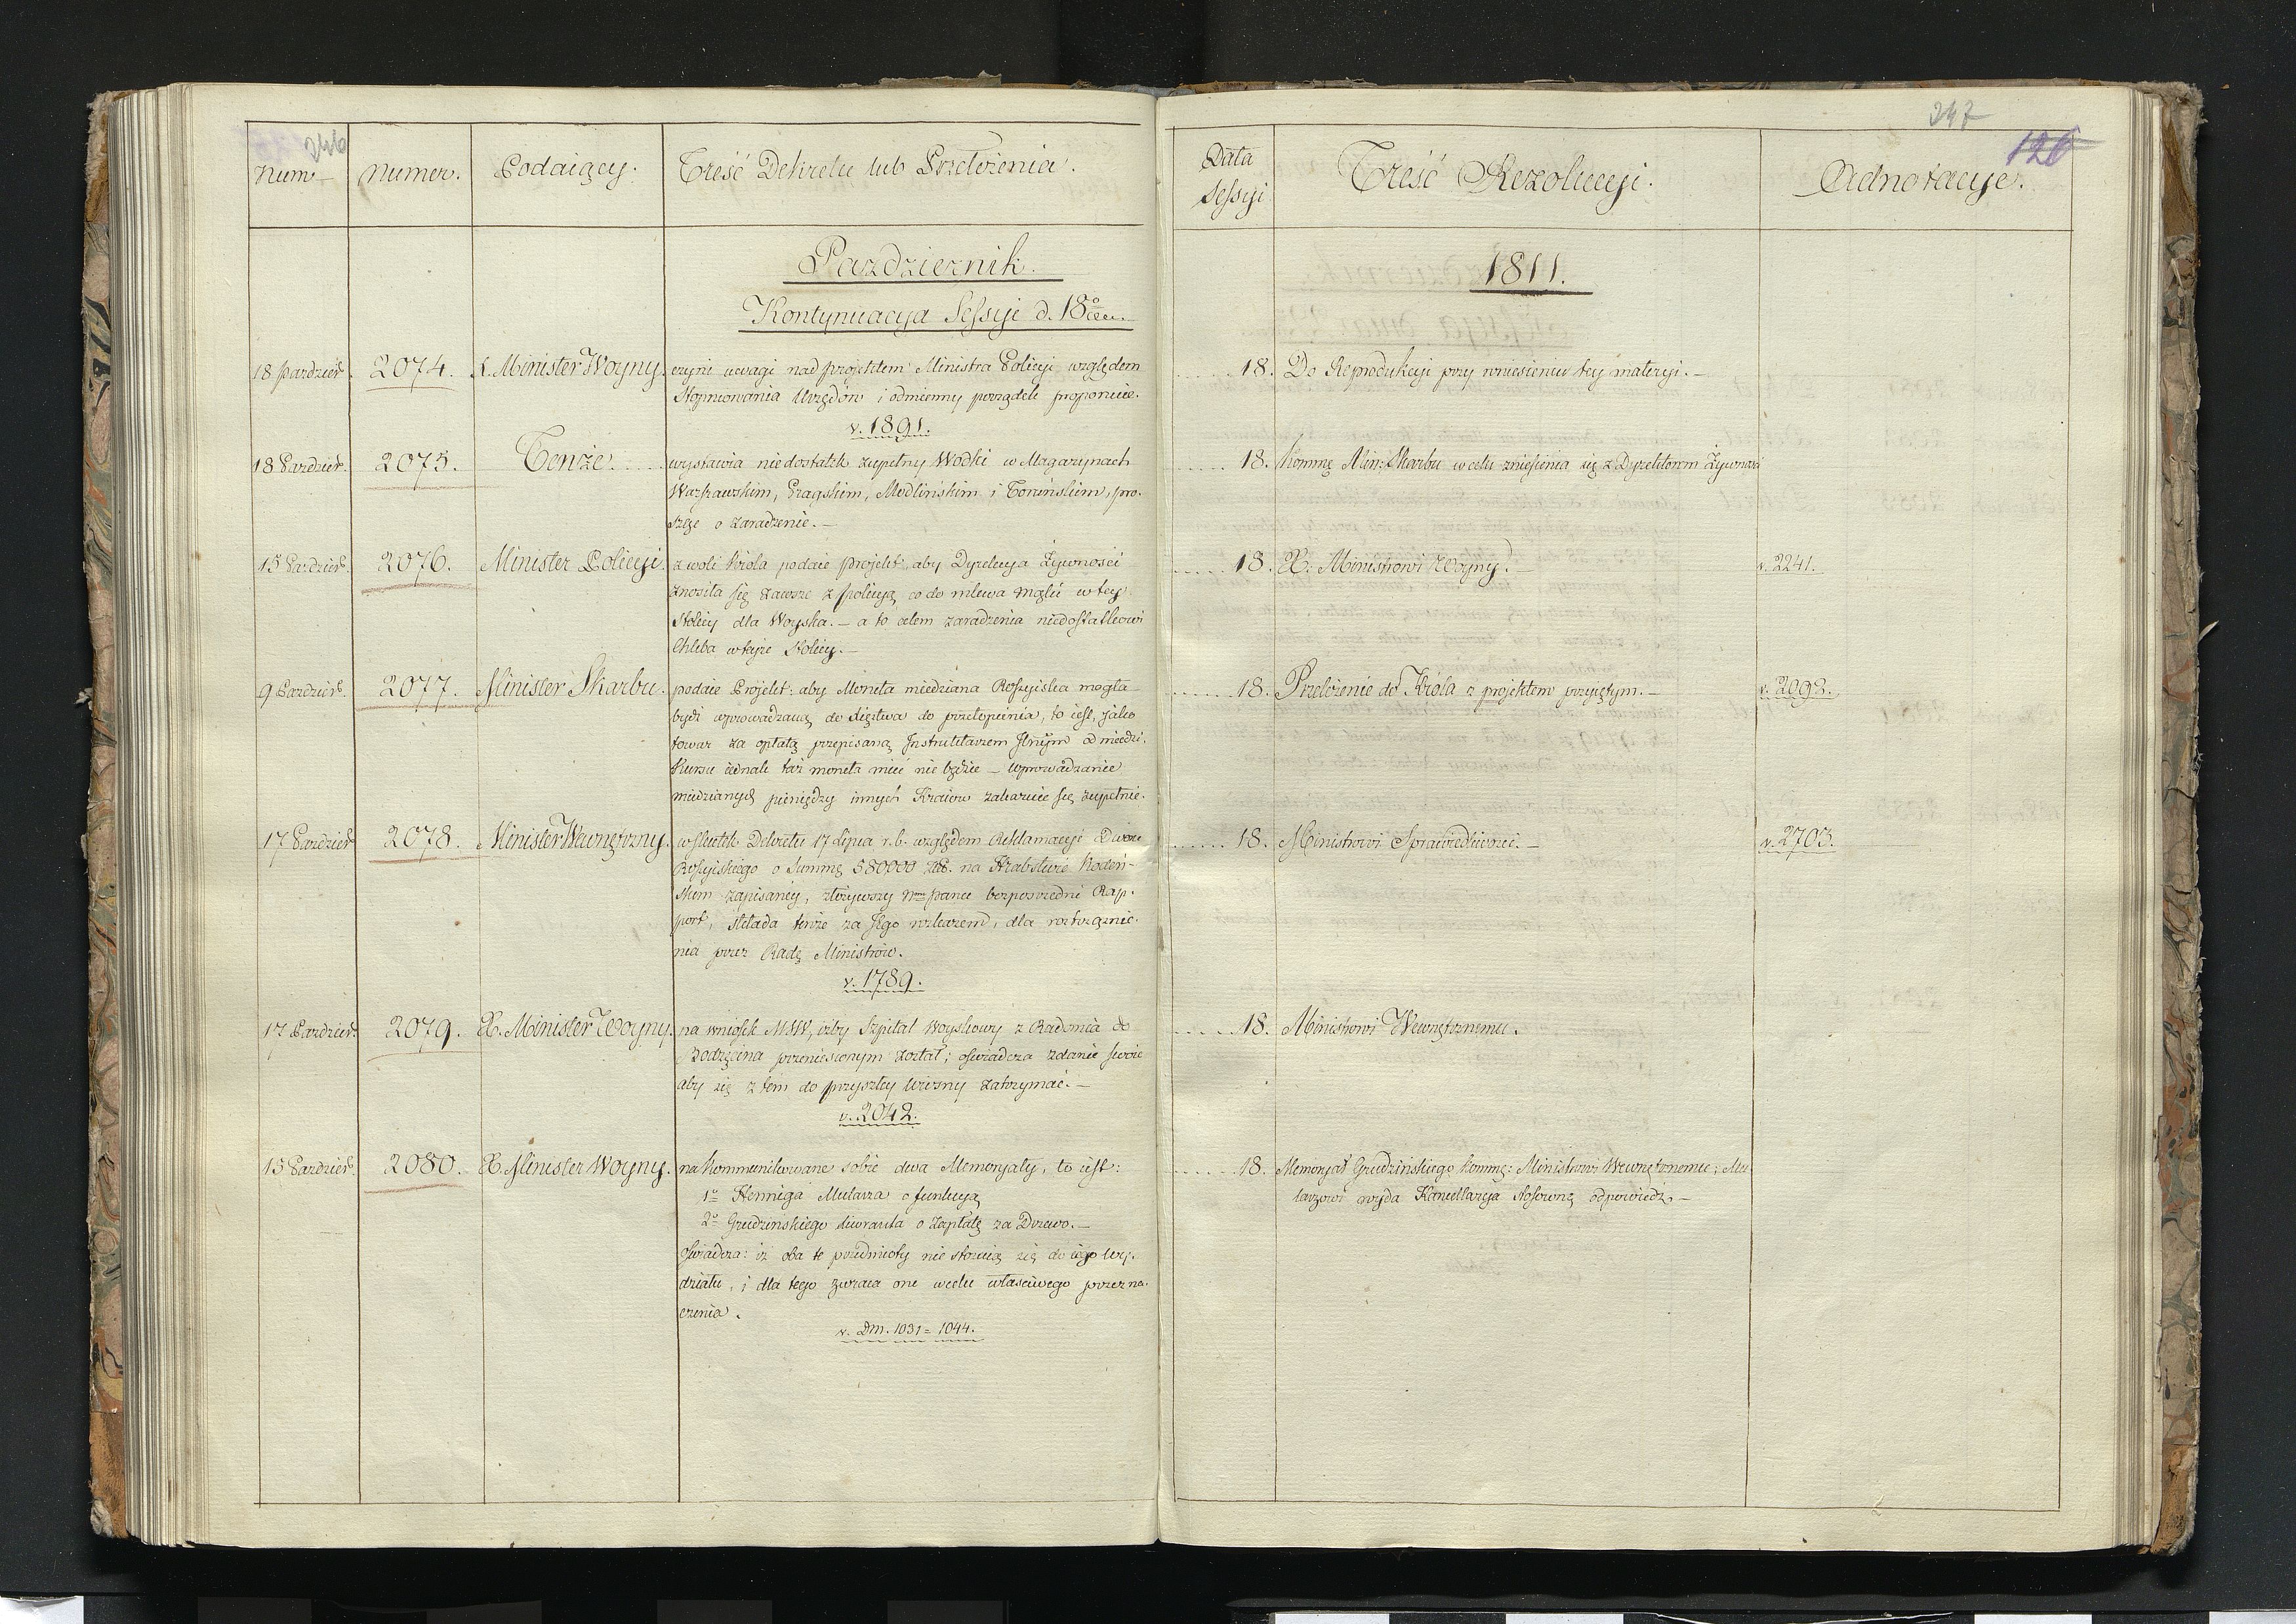 246
Num
Numer.
Podaiący.
Treść Dekretu lub Przełożenia.
Pazdziernik.
Kontynuacya Sessyi d. 18
18 Pazdzier.
2074.
X. Minister Woyny.
czyni uwagi nad projektem Ministra Policyi względem
stopniowania Urzędów i odmienny porządek proponuie.
v. 1891.
18 Pazdzier.
2075.
Tenże.
wystawia niedostatek zupełny Wódki w Magazynach
Warszawskim, Pragskim, Modlińskim i Toruńskim, pro-
szę o zaradzenie. —
15 Pazdzier.
2076.
Minister Policyi.
z woli Króla podaie projekt, aby Dyrekcya Żywności
znosiła się zawsze z Policyą co do mlewa mąki w tey
Stolicy dla Woyska. — a to celem zaradzenia niedostatkowi
Chleba w teyże Stolicy. —
9 Pazdzier.
2077.
Minister Skarbu.
podaie Projekt: aby Moneta miedziana Rossyiska mogła
bydź wprowadzaną do Xięstwa do przetopienia, to iest, jako
towar za opłatą przepisaną Instruktarzem Jlnym od miedzi.
Kursu iednak taż moneta mieć nie będzie — wprowadzanie
miedzianych pieniędzy innych Kraiow zakazuie się zupełnie.
17 Pazdzier.
2078.
Minister Wewnętrzny.
w skutek Dekretu 17 Lipca r. b. względem Reklamacyi Dworu
Rossyiskiego o Summę 580000 zł. na Hrabstwie Kodeń-
skim zapisaney, złożywszy Nmu Panu bezposredni Rap-
port, składa tenże za Jego rozkazem, dla roztrząśnie-
nia przez Radę Ministrów.
v. 1789.
17 Pazdzier.
2079.
X. Minister Woyny.
na wniosek MSW, iżby Szpital Woyskowy z Radomia do
Bodzęcina przeniesionym został; oświadcza zdanie swoie
aby się z tem do przyszłey Wiosny zatrzymać. —
v. 2042.
15 Pazdzier.
2080.
X. Minister Woyny.
na kommunikowane sobie dwa Memoryały, to iest:
1º Henniga Mularza o funkcyą
2º Grudzinskiego liweranta o zapłatę za Drzewo. —
oświadcza: iż oba te przedmioty nie stosuią się do iego Wy-
działu, i dla tego zwraca one w celu właściwego przezna-
czenia.
v. Dm. 1031 = 1044.
247
126
Data
Sessyi
Treść Rezolucyi.
Adnotacye.
1811.
18. Do Reprodukcyi przy wniesieniu tey materyi. —
18. Kommę Min: Skarbu w celu zniesienia się z Dyrektorem Żywności
18. X. Ministrowi Woyny. —
v. 2241.
18. Przełożenie do Króla z projektem przyiętym. —
v. 2093.
18. Ministrowi Sprawiedliwości. —
v. 2703.
18. Ministrowi Wewnętrznemu.
18. Memoryał Grudzińskiego Kommę: Ministrowi Wewnętrznemu; Mu-
larzowi wyda Kancellarya stosowną odpowiedź. —